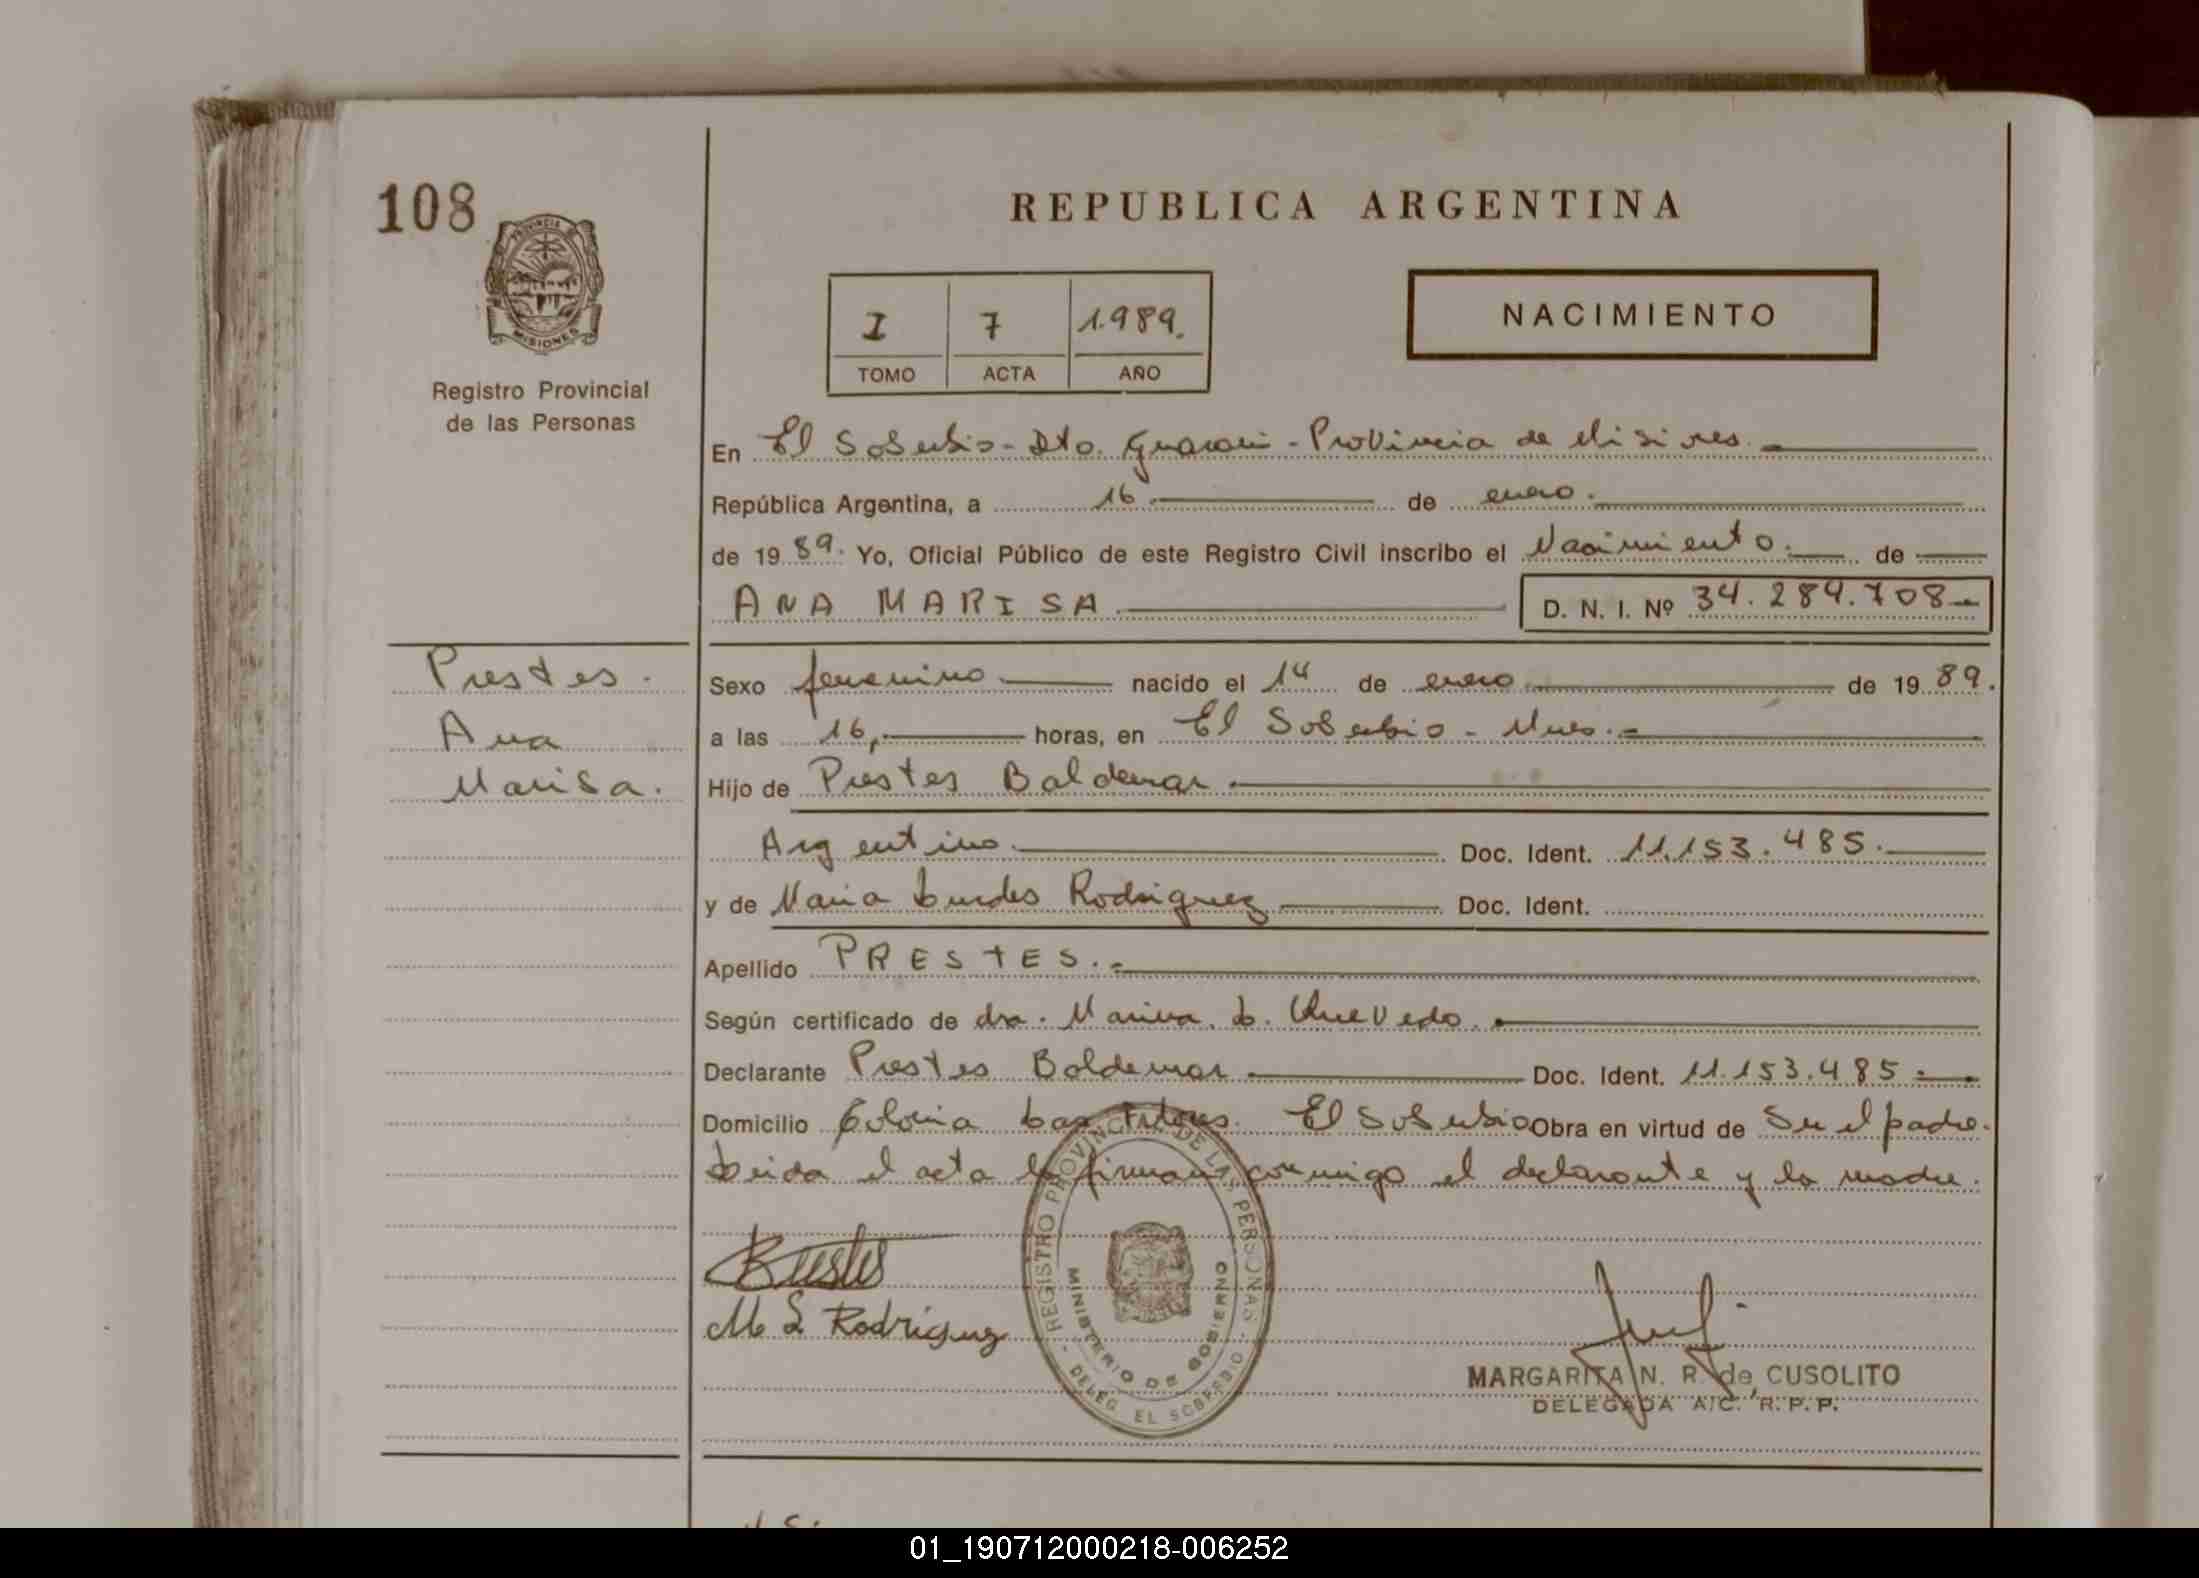 108
PROVINCIA DE
MISIONES
Registro Provincial
de las Personas
REPUBLICA ARGENTINA
I 7 1.989.
TOMO ACTA AÑO
NACIMIENTO
En El Soberbio - Dto. Guaraní - Provincia de Misiones.
República Argentina, a 16 de enero.
de 19 89. Yo, Oficial Público de este Registro Civil inscribo el Nacimiento. de
ANA MARISA D. N. I. Nº 34.284.708
Prestes.
Ana
Marisa.
Sexo femenino nacido el 14 de enero de 19 89.
a las 16, horas, en El Soberbio - Mnes.
Hijo de Prestes Baldemar
Argentino. Doc. Ident. 11.153.485.
y de Maria Lurdes Rodriguez Doc. Ident.
Apellido PRESTES.
Según certificado de dra. Marina. L. Quevedo.
Declarante Prestes Baldemar Doc. Ident. 11.153.485
Domicilio Colonia El Soberbio Obra en virtud de Ser el padre.
Leida el acta la firman conmigo el declarante y la madre.
REGISTRO PROVINCIAL DE LAS PERSONAS
MINISTERIO DE GOBIERNO
DELEG. EL SOBERBIO
BPrestes
M L Rodriguez
MARGARITA N. R. de CUSOLITO
DELEGADA A/C. R. P. P.
01_190712000218-006252